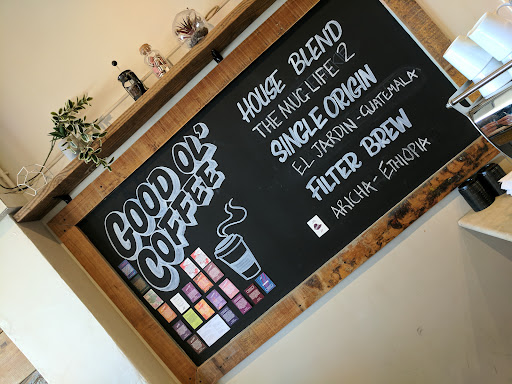 GOOD OL'
COFFEE
HOUSE BLEND
THE MUG LIFE 2
SINGLE ORIGIN
EL JARDIN - GUATEMALA
FILTER BREW
ARICHA - ETHIOPIA